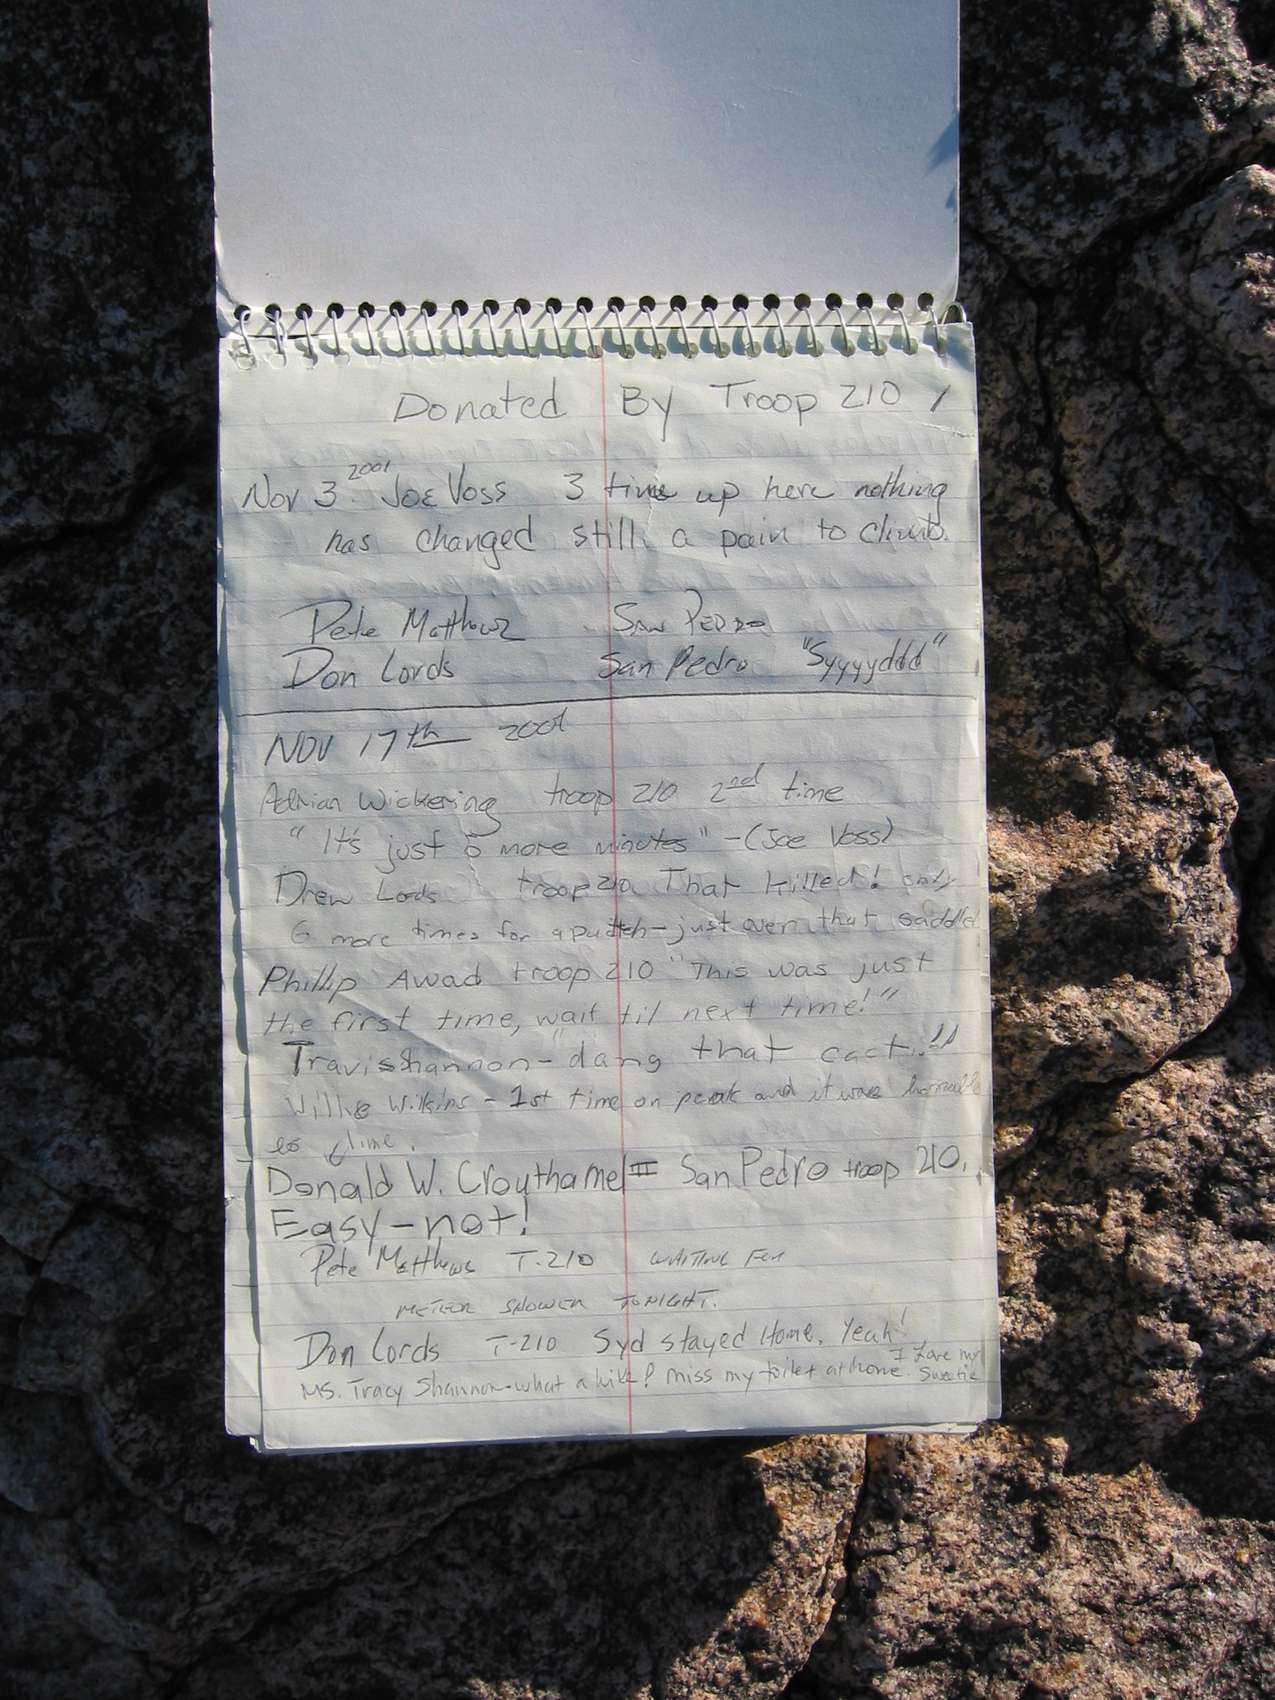 Donated By Troop 210
Nov 3. 2001 Joe Voss 3 time up here nothing
has changed still a pain to climb.
Pete Matthews San Pedro
Don Lords San Pedro "Syyyyddd"
NOV 17th 2001
Adrian Wickering troop 210 2nd time
"It's just 5 more minutes" -(Joe Voss)
Drew Lords troop 210 That killed! only
6 more times for a patch-just over that saddle
Phillip Awad troop 210 "This was just
the first time, wait til next time!"
Travis Shannon- "dang that cacti!"
Willie Wilkins - 1st time on peak and it was horrible
Donald W. Croythamel III San Pedro troop 210.
Easy-not!
Pete Matthews T-210 WAITING FOR
METEOR SHOWER TONIGHT.
Don Lords T-210 Syd stayed Home. Yeah!
I Love my
Ms. Tracy Shannon-what a hike! miss my toilet at home. Sweetie